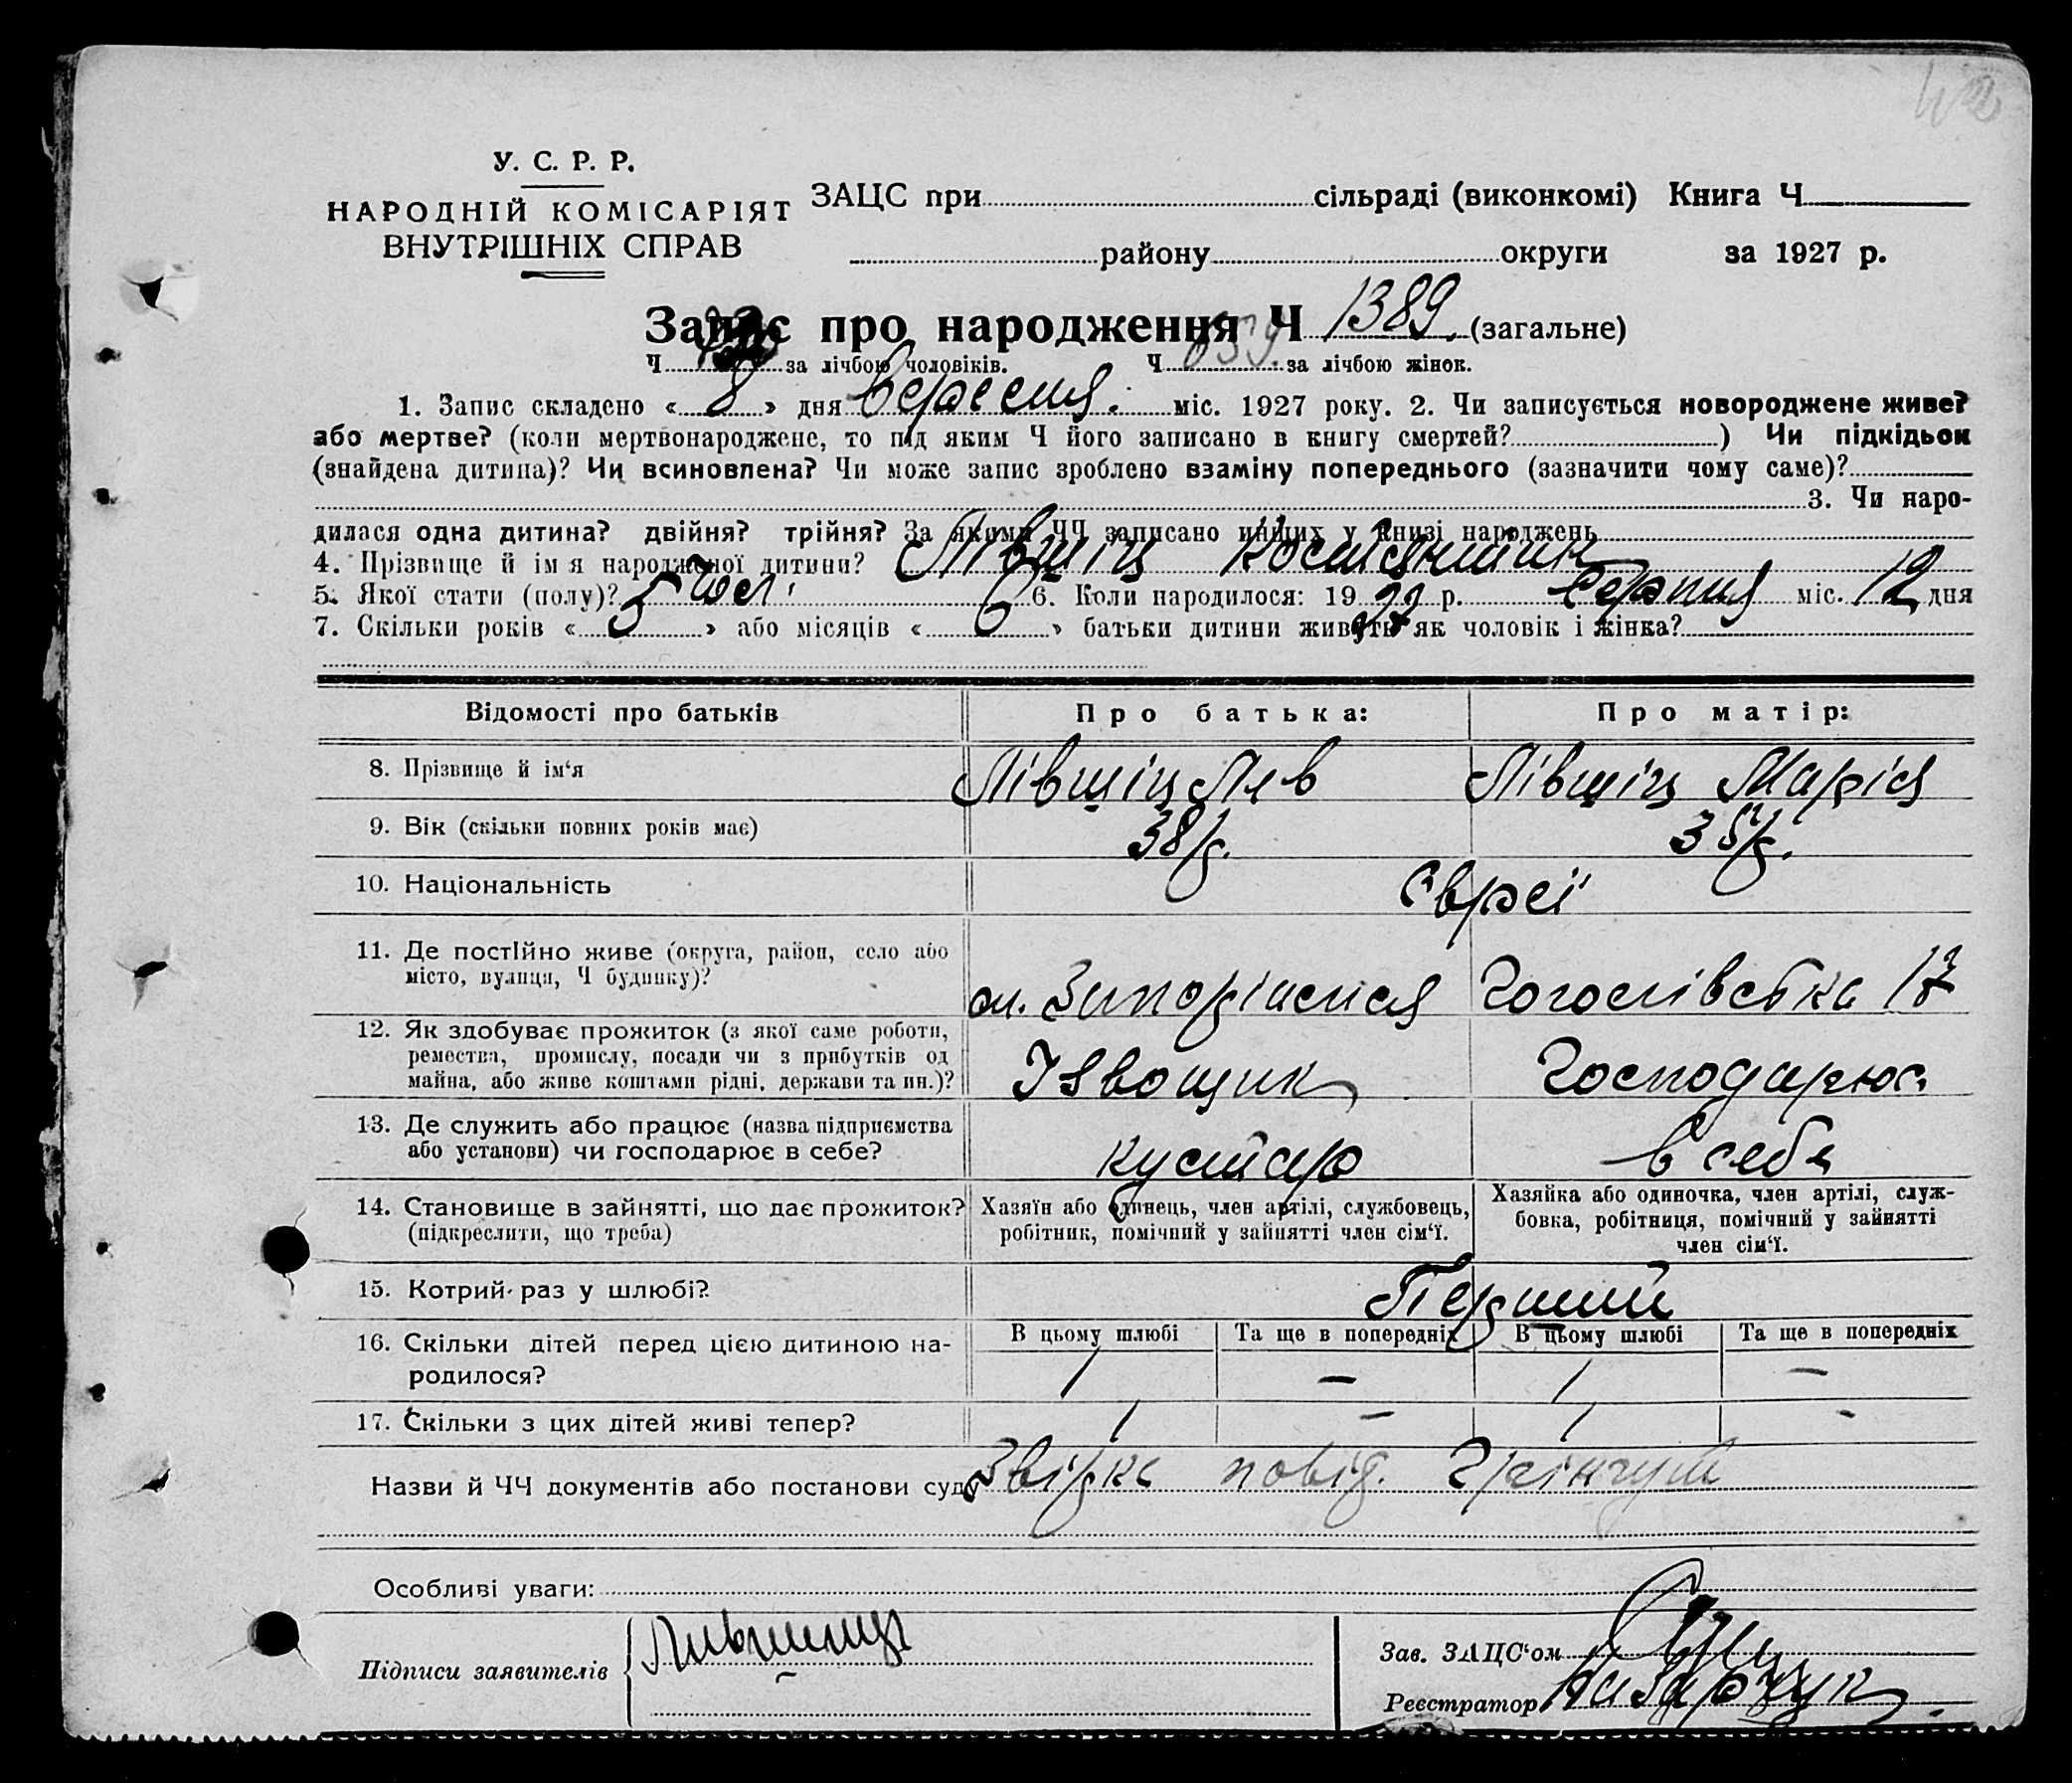 У. С. Р. Р.
НАРОДНІЙ КОМІСАРІЯТ
ВНУТРІШНІХ СПРАВ
ЗАЦС при сільраді (виконкомі) Книга Ч
району округи за 1927 р.
Запис про народження Ч 1389. (загальне)
Ч за лічбою чоловіків. Ч 659. за лічбою жінок.
1. Запис складено « 8 » дня вересня. міс. 1927 року. 2. Чи записується новороджене живе?
або мертве? (коли мертвонароджене, то під яким Ч його записано в книгу смертей? ) Чи підкідьок
(знайдена дитина)? Чи всиновлена? Чи може запис зроблено взаміну попереднього (зазначити чому саме)?
3. Чи наро-
дилася одна дитина? двійня? трійня? За якими ЧЧ записано инших у книзі народжень
4. Прізвище й ім я народженої дитини? Лівшіц Костянтин
5. Якої статі (полу)? Чол. 6. Коли народилося: 1927 р. Серпня міс. 12 дня
7. Скільки років « 5 » або місяців « 6 » батьки дитини живуть як чоловік і жінка?
Відомості про батьків Про батька: Про матір:
8. Прізвище й ім‘я Лівшіц Лев Лівшіц Марія
9. Вік (скільки повних років має) 38 р. 35 р.
10. Національність Євреї
11. Де постійно живе (округа, район, село або
місто, вулиця, Ч будинку)? м. Запоріжжя Гоголівська 17
12. Як здобуває прожиток (з якої саме роботи,
ремества, промислу, посади чи з прибутків од
майна, або живе коштами рідні, держави та ин.)? Ізвощик Господарює
13. Де служить або працює (назва підприємства
або установи) чи господарює в себе? кустар в себе
14. Становище в зайнятті, що дає прожиток?
(підкреслити, що треба)
Хазяїн або одинець, член артілі, службовець,
робітник, помічний у зайнятті член сім‘ї.
Хазяйка або одиночка, член артілі, служ-
бовка, робітниця, помічний у зайнятті
член сім‘ї.
15. Котрий раз у шлюбі? Перший
16. Скільки дітей перед цією дитиною на-
родилося?
В цьому шлюбі Та ще в попередніх В цьому шлюбі Та ще в попередніх
1 — 1 —
17. Скільки з цих дітей живі тепер? 1 — 1 -
Назви й ЧЧ документів або постанови суду повід.
Особливі уваги:
Підписи заявителів Лившиц
Зав. ЗАЦС‘ом
Реєстратор Назарчук